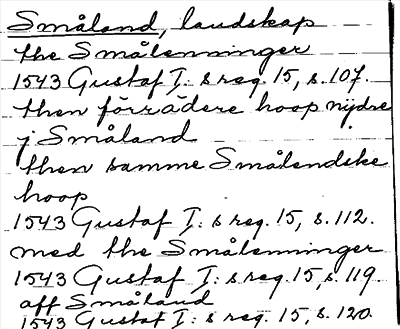 Småland, landskap
the Smålenninger
1543 Gustaf I: s reg. 15, s. 107.
then förrädere hoop nijdre
j Småland
then samme Smålendske
hoop
1543 Gustaf I: s reg. 15, s. 112.
med the Smålenninger
1543 Gustaf I: s reg. 15, s. 119.
aff Småland
1543 Gustaf I: s reg. 15, s. 120.